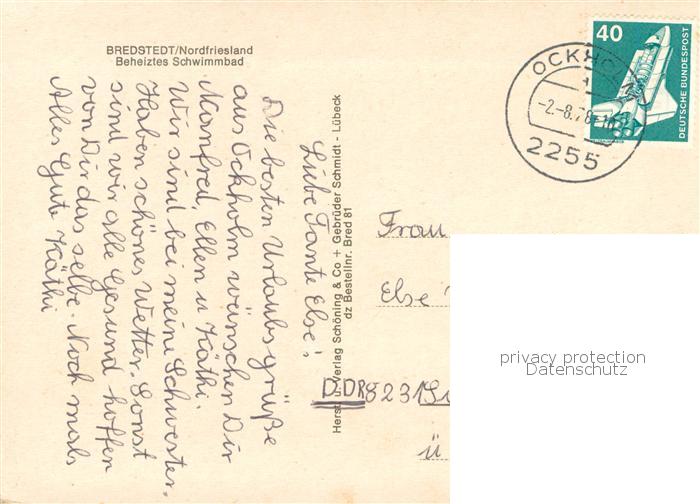 BREDSTEDT/Nordfriesland
Beheiztes Schwimmbad
Liebe Tante Else!
Die besten Urlaubsgrüße
aus Ockholm wünschen Dir
Manfred, Ellen u Käthi.
Wir sind bei meine Schwester.
Haben schönes Wetter. Sonst
sind wir alle Gesund hoffen
von Dir das selbe. Noch mals
Alles Gute Käthi
Verlag Schöning & Co + Gebrüder Schmidt - Lübeck
dz Bestellnr. Bred 81
40
DEUTSCHE BUNDESPOST
OCKHOLM
-2.-8.78
2255
Frau
Else
DDR 8231
ü
privacy protection
Datenschutz